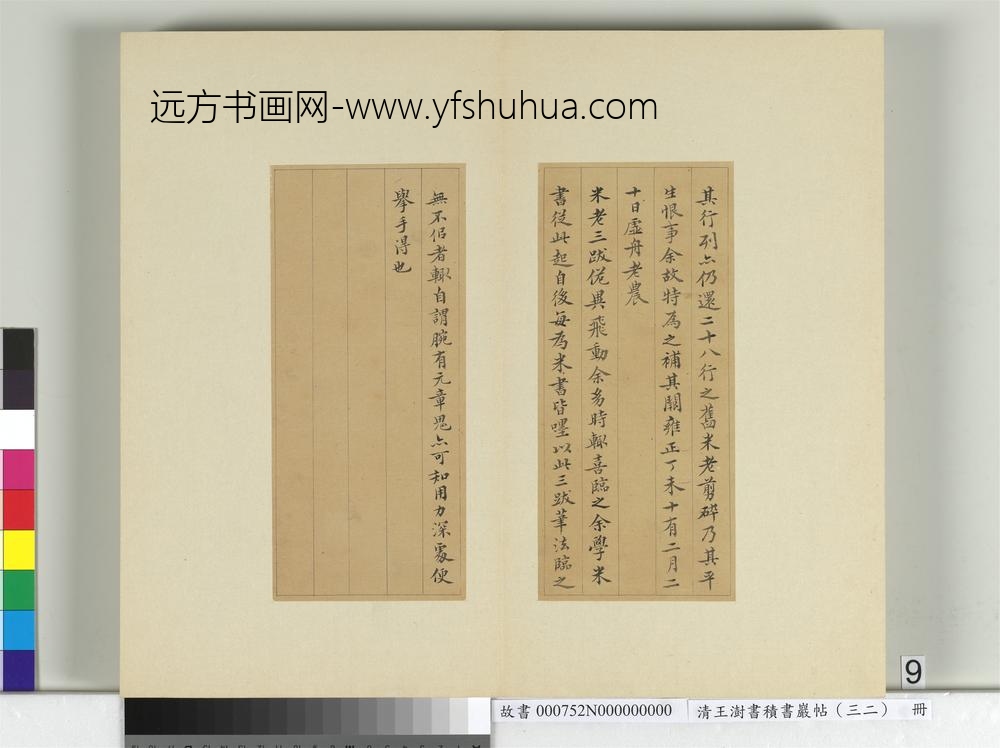 远方书画网-www.yfshuhua.com
其行列亦仍還二十八行之舊米老剪碎乃其平
生恨事余故特為之補其闕雍正丁未十有二月二
十日虛舟老農
米老三跋俊異飛動余多時輒喜臨之余學米
書從此起自後每為米書皆以此三跋筆法臨之
無不佀者輒自謂腕有元章鬼亦可知用力深處便
舉手得也
9
故書 000752N000000000 清王澍書積書巖帖(三二) 冊